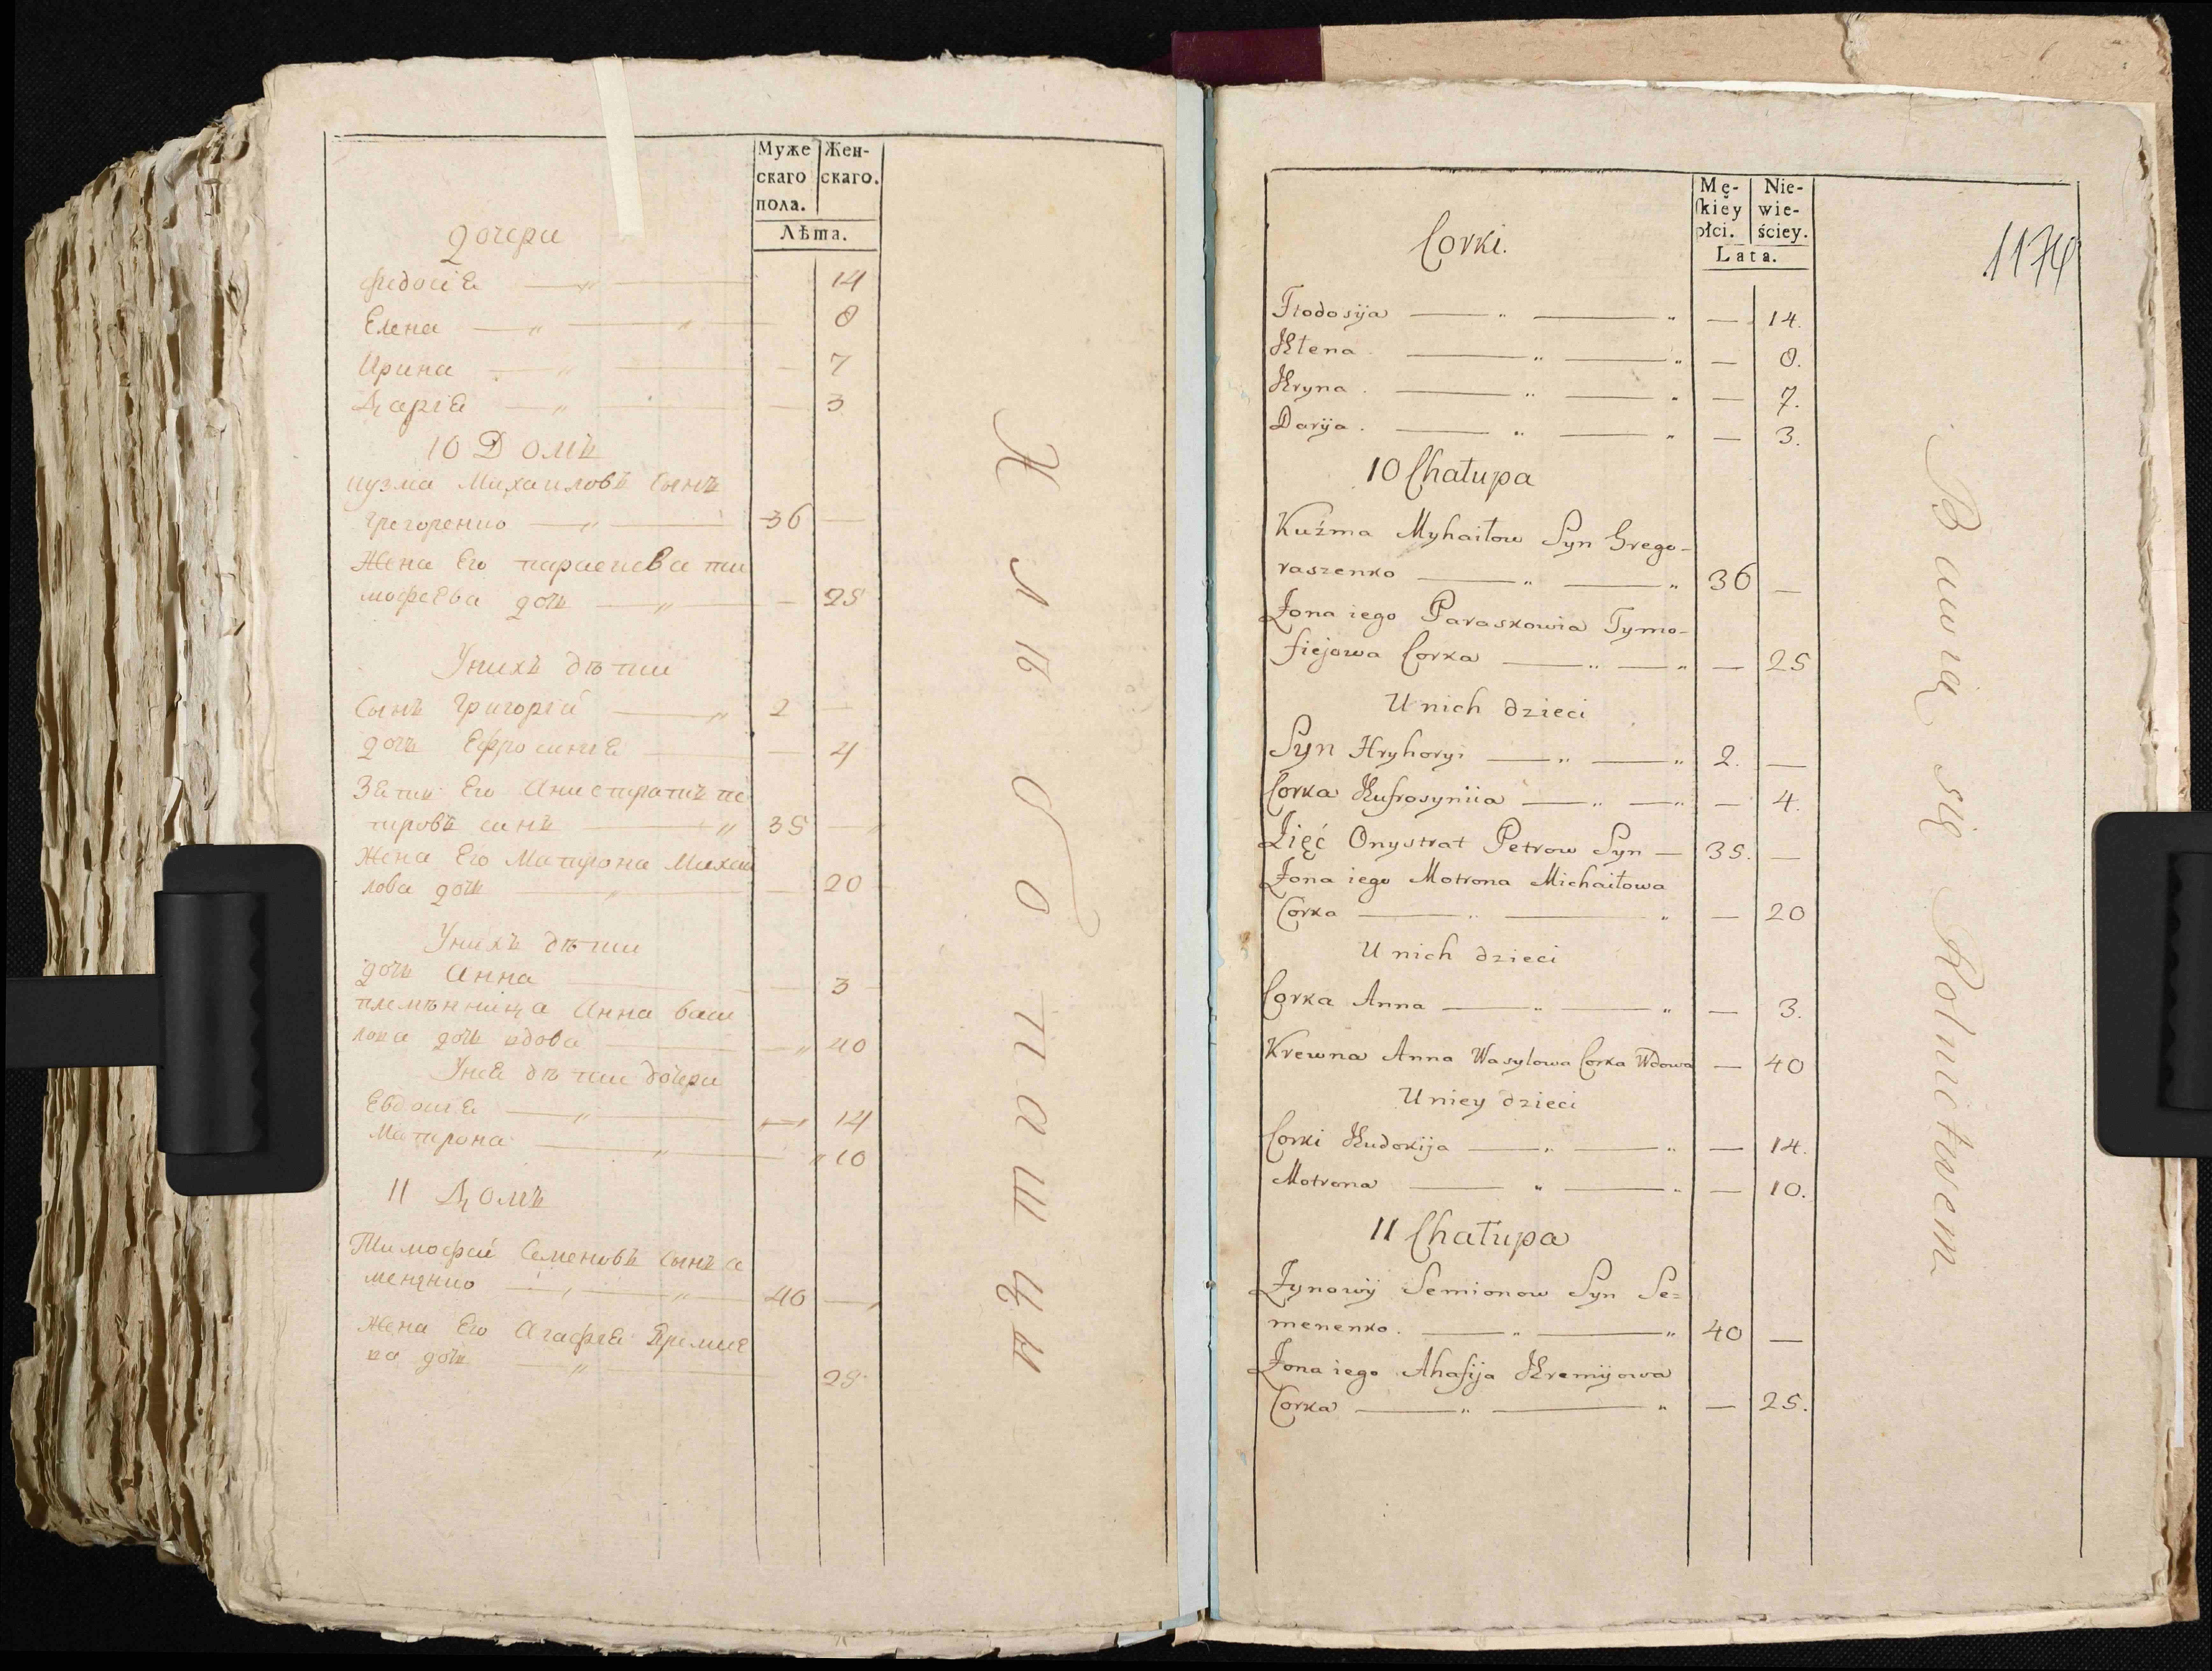 Муже
скаго
пола.
Жен-
скаго.
Лѣта.
дочери
федосіѣ 14
Елена 8
Ирина 7
Даріѣ 3
10 Домъ
кузма Михаиловъ сынъ
григоренко 36
Жена Его параскева ти
мофеева дочь 25
Унихъ дѣти
Сынъ Григорій 2
дочь Ефросиніѣ 4
Зѣть Его Анистратъ пе
тровъ синъ 35
Жена Его Матрона Михаи
лова дочь 20
Унихъ дѣти
дочь Анна 3
племѣнница Анна васи
лова дочь вдова 40
Унеѣ дѣти дочери
Евдокіѣ 14
Матрона 10
11 Домъ
Тимофей Семеновъ сынъ се
мененко 40
Жена Его Агафіѣ
ва дочь 25
Mę-
skiey
płci.
Nie-
wie-
ściey.
Lata.
1174
Corki.
Fiodosija 14.
Helena 8.
Hryna 7.
Daryja 3.
10 Chałupa
Kuźma Myhaiłow Syn Grego-
raszenko 36
Żona iego Paraskowia Tymo-
fiejowa Corka 25
U nich dzieci
Syn Hryhoryi 2.
Corka Hufrosyniia 4.
Zięć Onystrat Petrow Syn 35.
Żona iego Motrona Michaiłowa
Corka 20
U nich dzieci
Corka Anna 3.
Krewna Anna Wasylowa Corka Wdowa 40
U niey dzieci
Corki Hudokija 14.
Motrona 10.
11 Chałupa
Semionow Syn Se=
menenko. 40
Żona iego Ahafija
Corka 25.
Bawią się Rolnictwem